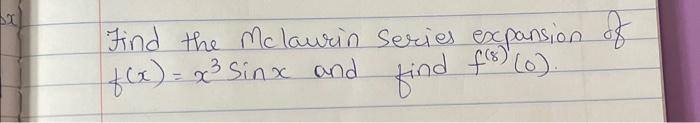 Find the Mclaurin Series expansion of
f(x) = x³ Sinx and find f⁽⁸⁾(0).